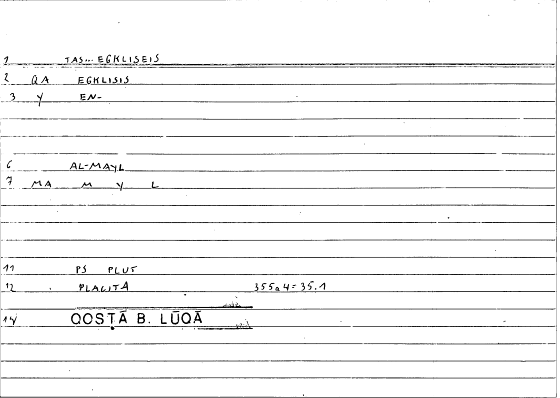 1 TAS... EGKLISEIS
2 QA EGKLISIS
3 Y EN-
6 AL-MAYL
7 MA M Y L
11 PS PLUT
12 PLACITA 355a4=35.1
14 QOSṬĀ B. LŪQĀ